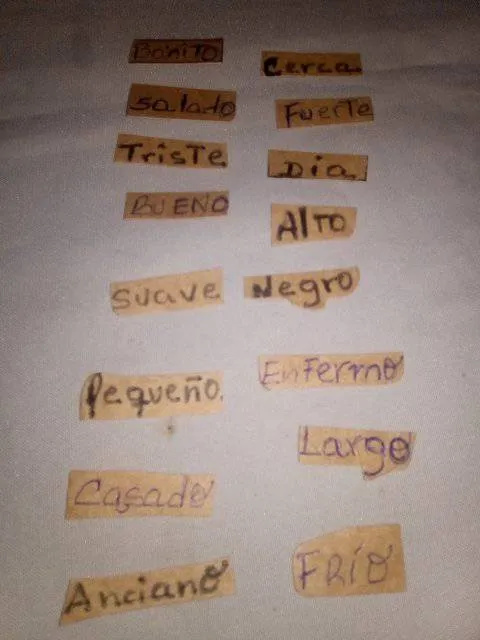 Bonito
Salado
Triste
BUENO
Suave
Pequeño.
Casado
Anciano
Cerca
Fuerte
Dia
Alto
Negro
Enfermo
Largo
FRÍO